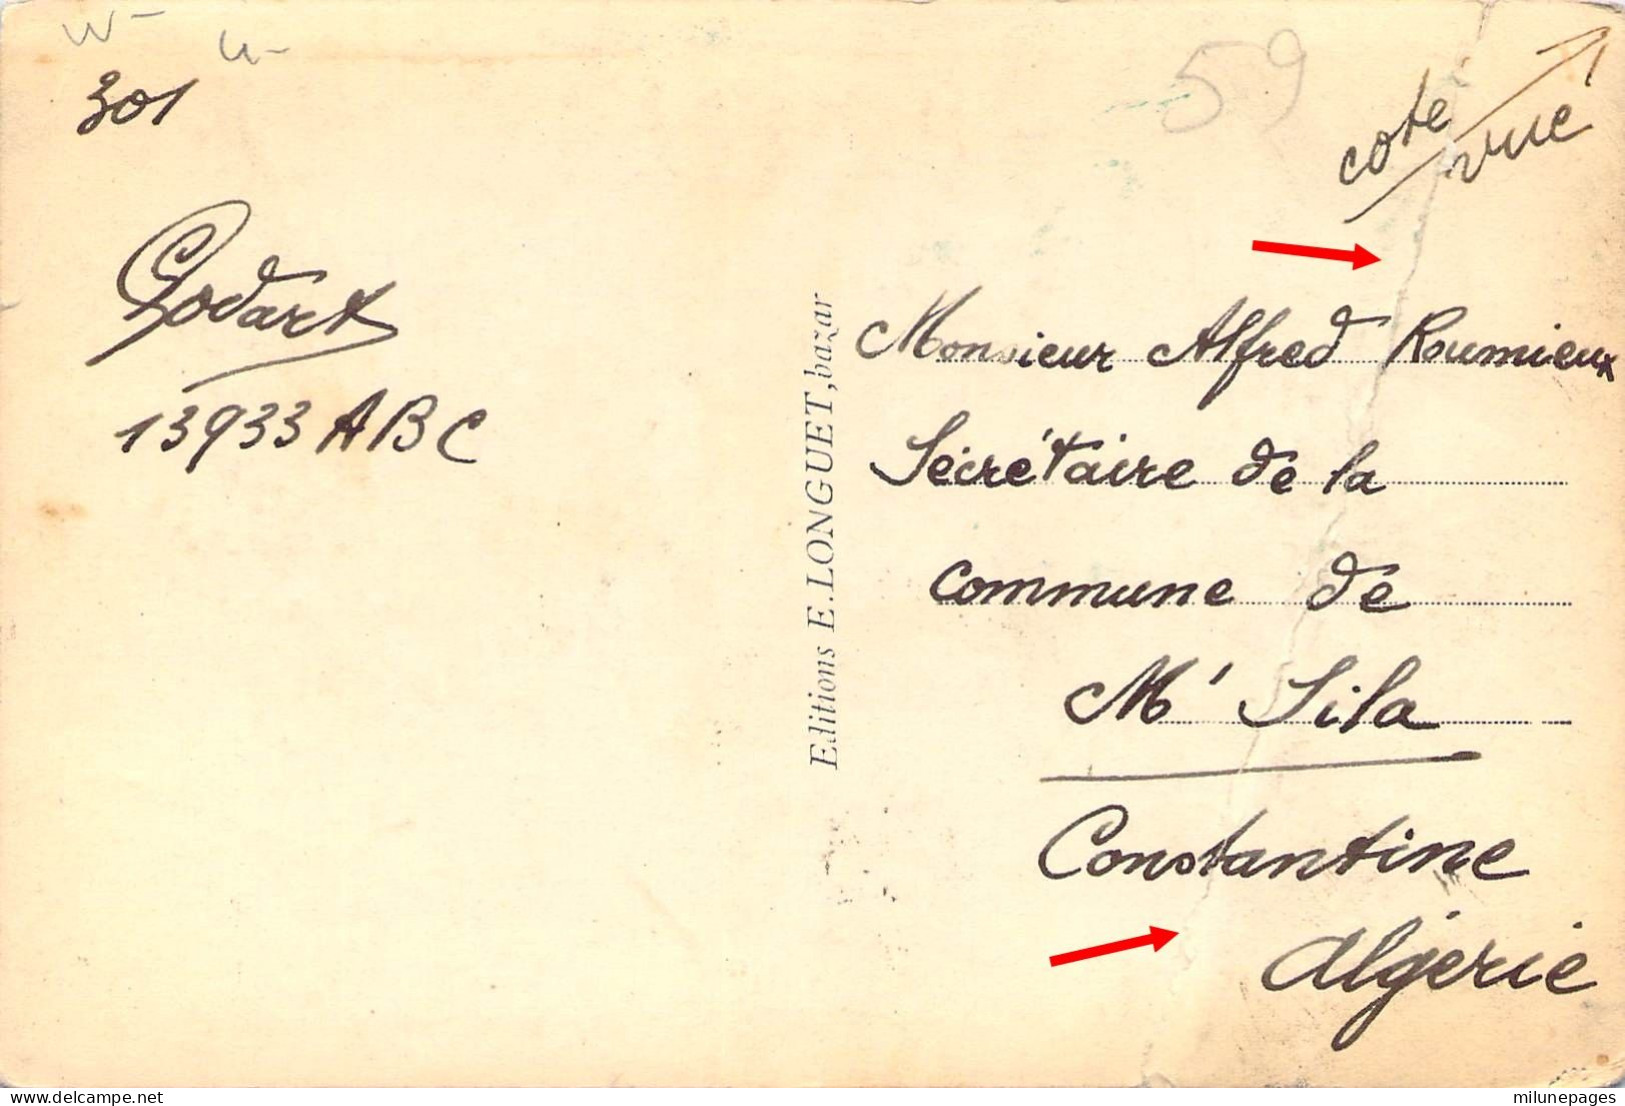 301
59
cote
vue
Godart
13933 ABC
Editions E. LONGUET, bazar
Monsieur Alfred Roumieux
Secrétaire de la
commune de
M' Sila
Constantine
Algérie
www.delcampe.net
milunepages